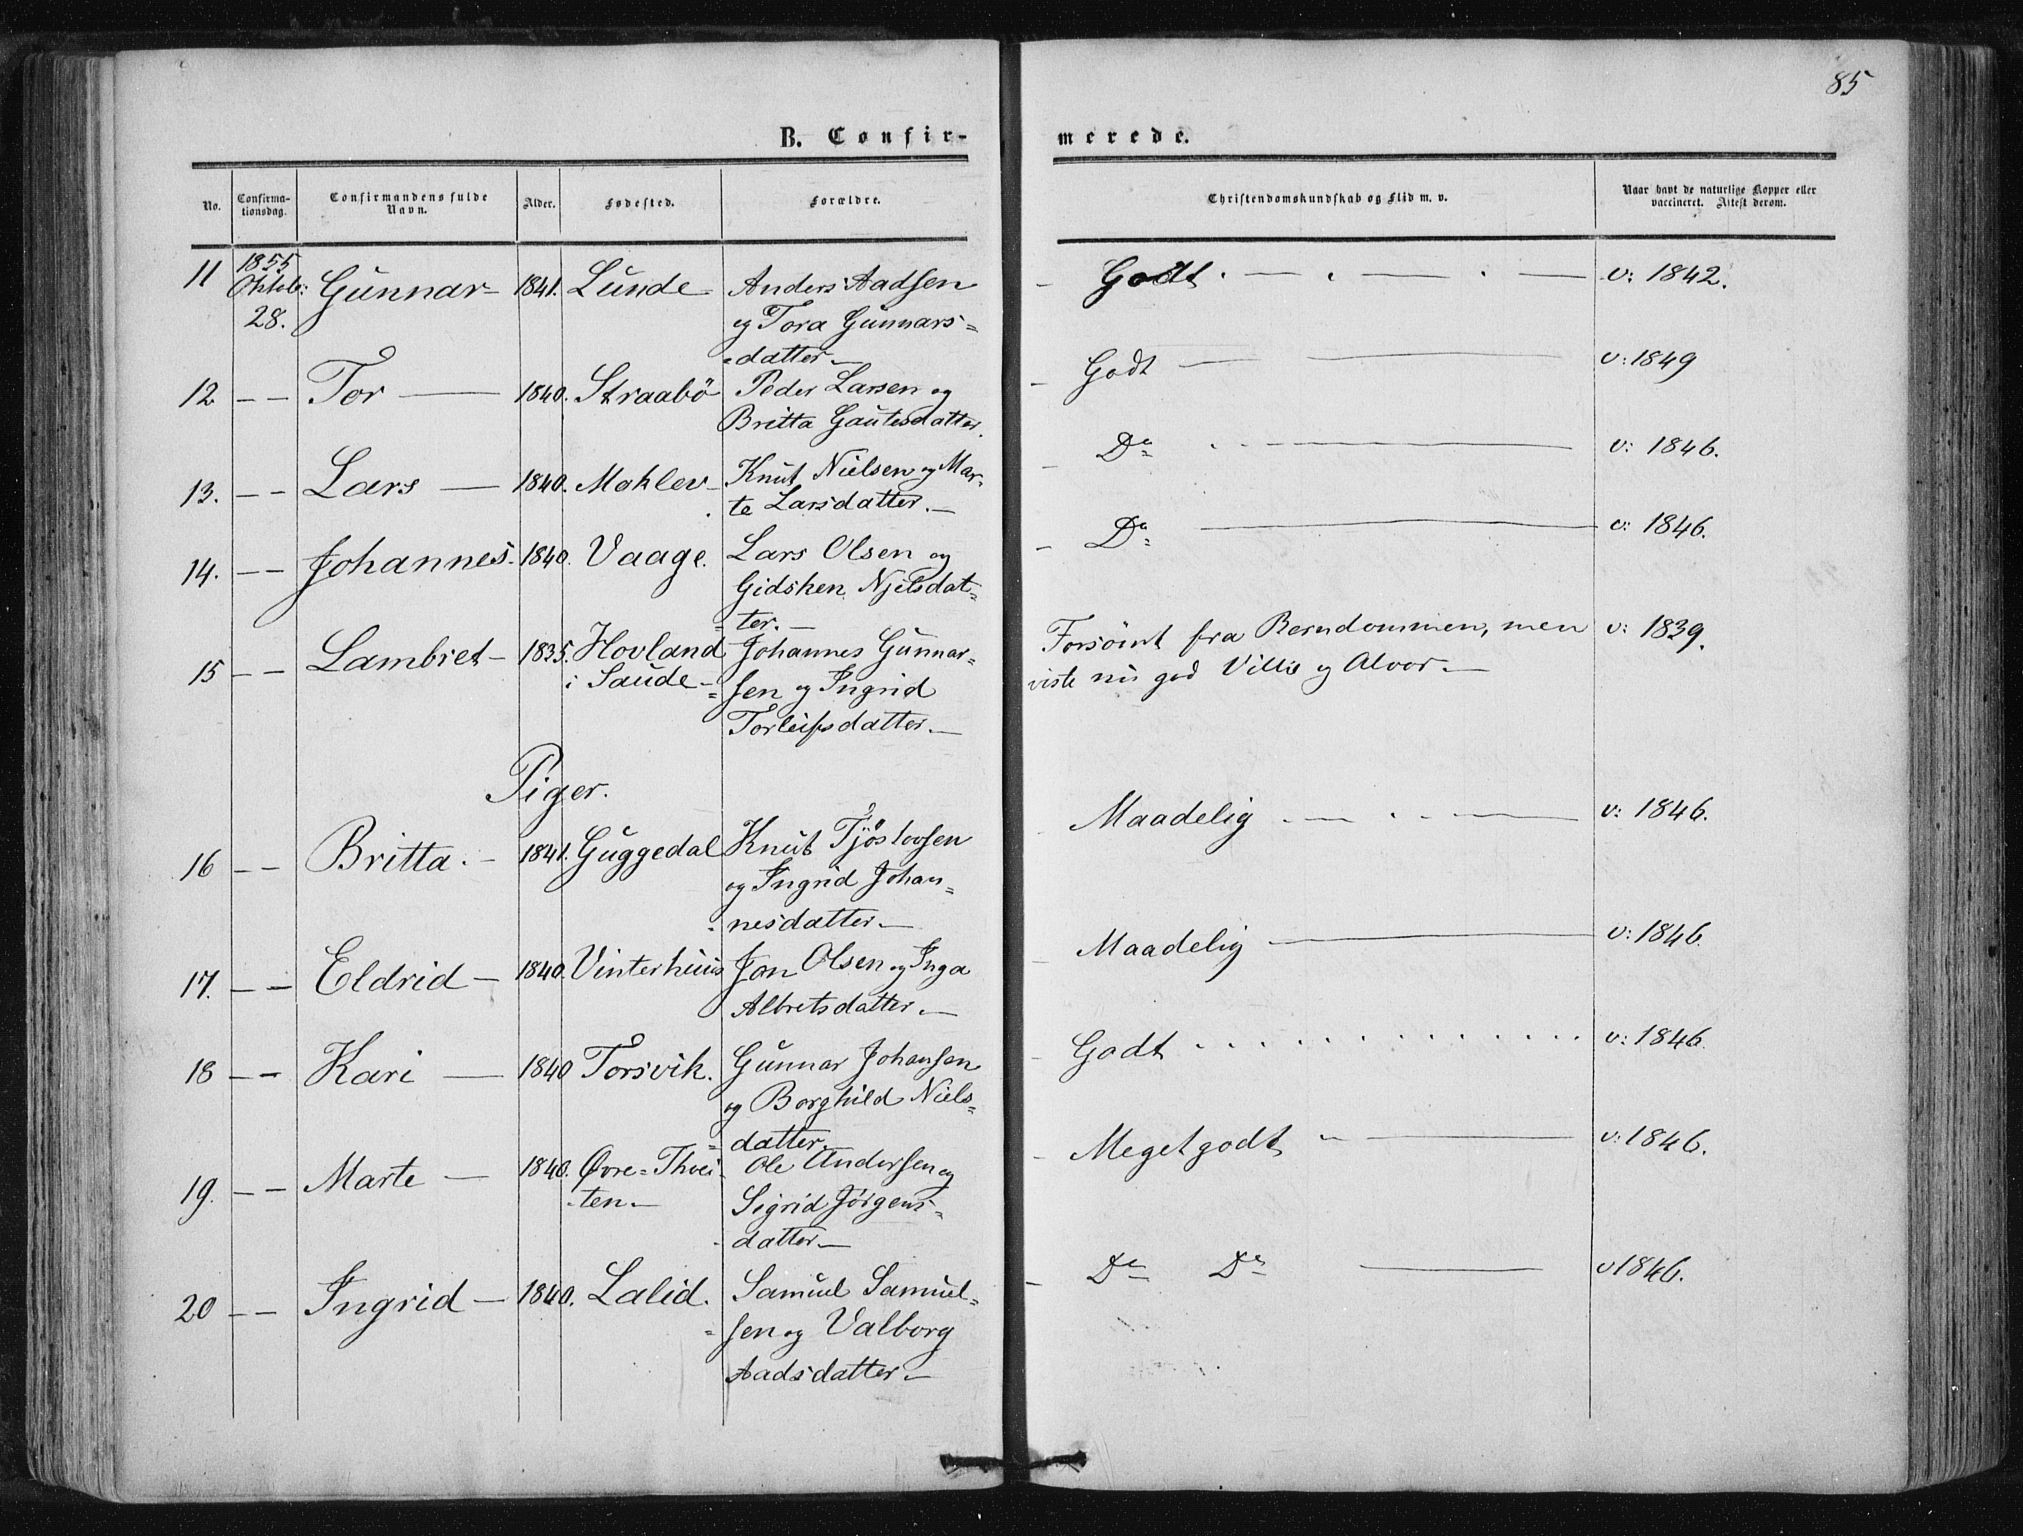 85
B. Confir- merede.
No. Confirma- Confirmandens fulde Alder. Fødested. Forældre. Christendomskundskab og Flid m. v. Naar havt de naturlige Kopper eller
tionsdag. Navn. vaccineret. Attest derom.
11 1855 Oktob: 28. Gunnar- 1841. Lunde Anders Aadsen Godt. — . — . — v: 1842.
og Tora Gunnars=
=datter —
12 — — Tor — 1840. Straabö Peder Larsen og Godt — — v: 1849
Britta Gautesdatter.
13. — — Lars — 1840. Moklev- Knut Nielsen og Mar- Do — v: 1846.
te Larsdatter. —
14. — — Johannes. 1840. Vaage. Lars Olsen og Do — v: 1846.
Gidsken Njelsdat=
=ter. —
15 — — Lambret- 1835. Hovland Johannes Gunnar- Forsömt fra Barndommen, men v: 1839.
i Saude- =sen og Ingrid viste nu god Villie og Alvor. —
Torleifsdatter. —
Piger.
16 — — Britta. - 1841. Guggedal Knut Tjöslovsen Maadelig — . — v: 1846.
og Ingrid Johan=
nesdatter —
17. — — Eldrid — 1840. Vinterhuus Jon Olsen og Inga Maadelig — v: 1846.
Albretsdatter. —
18 — — Kari — 1840 Torsvik. Gunnar Johansen Godt . . . . . . . . . . . . v: 1846.
og Borghild Niels=
=datter.
19. — — Marte — 1840. Øvre=Thvei- Ole Andersen og Meget godt — v: 1846.
-ten — Sigrid Jörgens=
datter —
20 — — Ingrid — 1840. Lalid. Samuel Samuel= Do Do — v 1846.
=sen og Valborg
Aadsdatter —